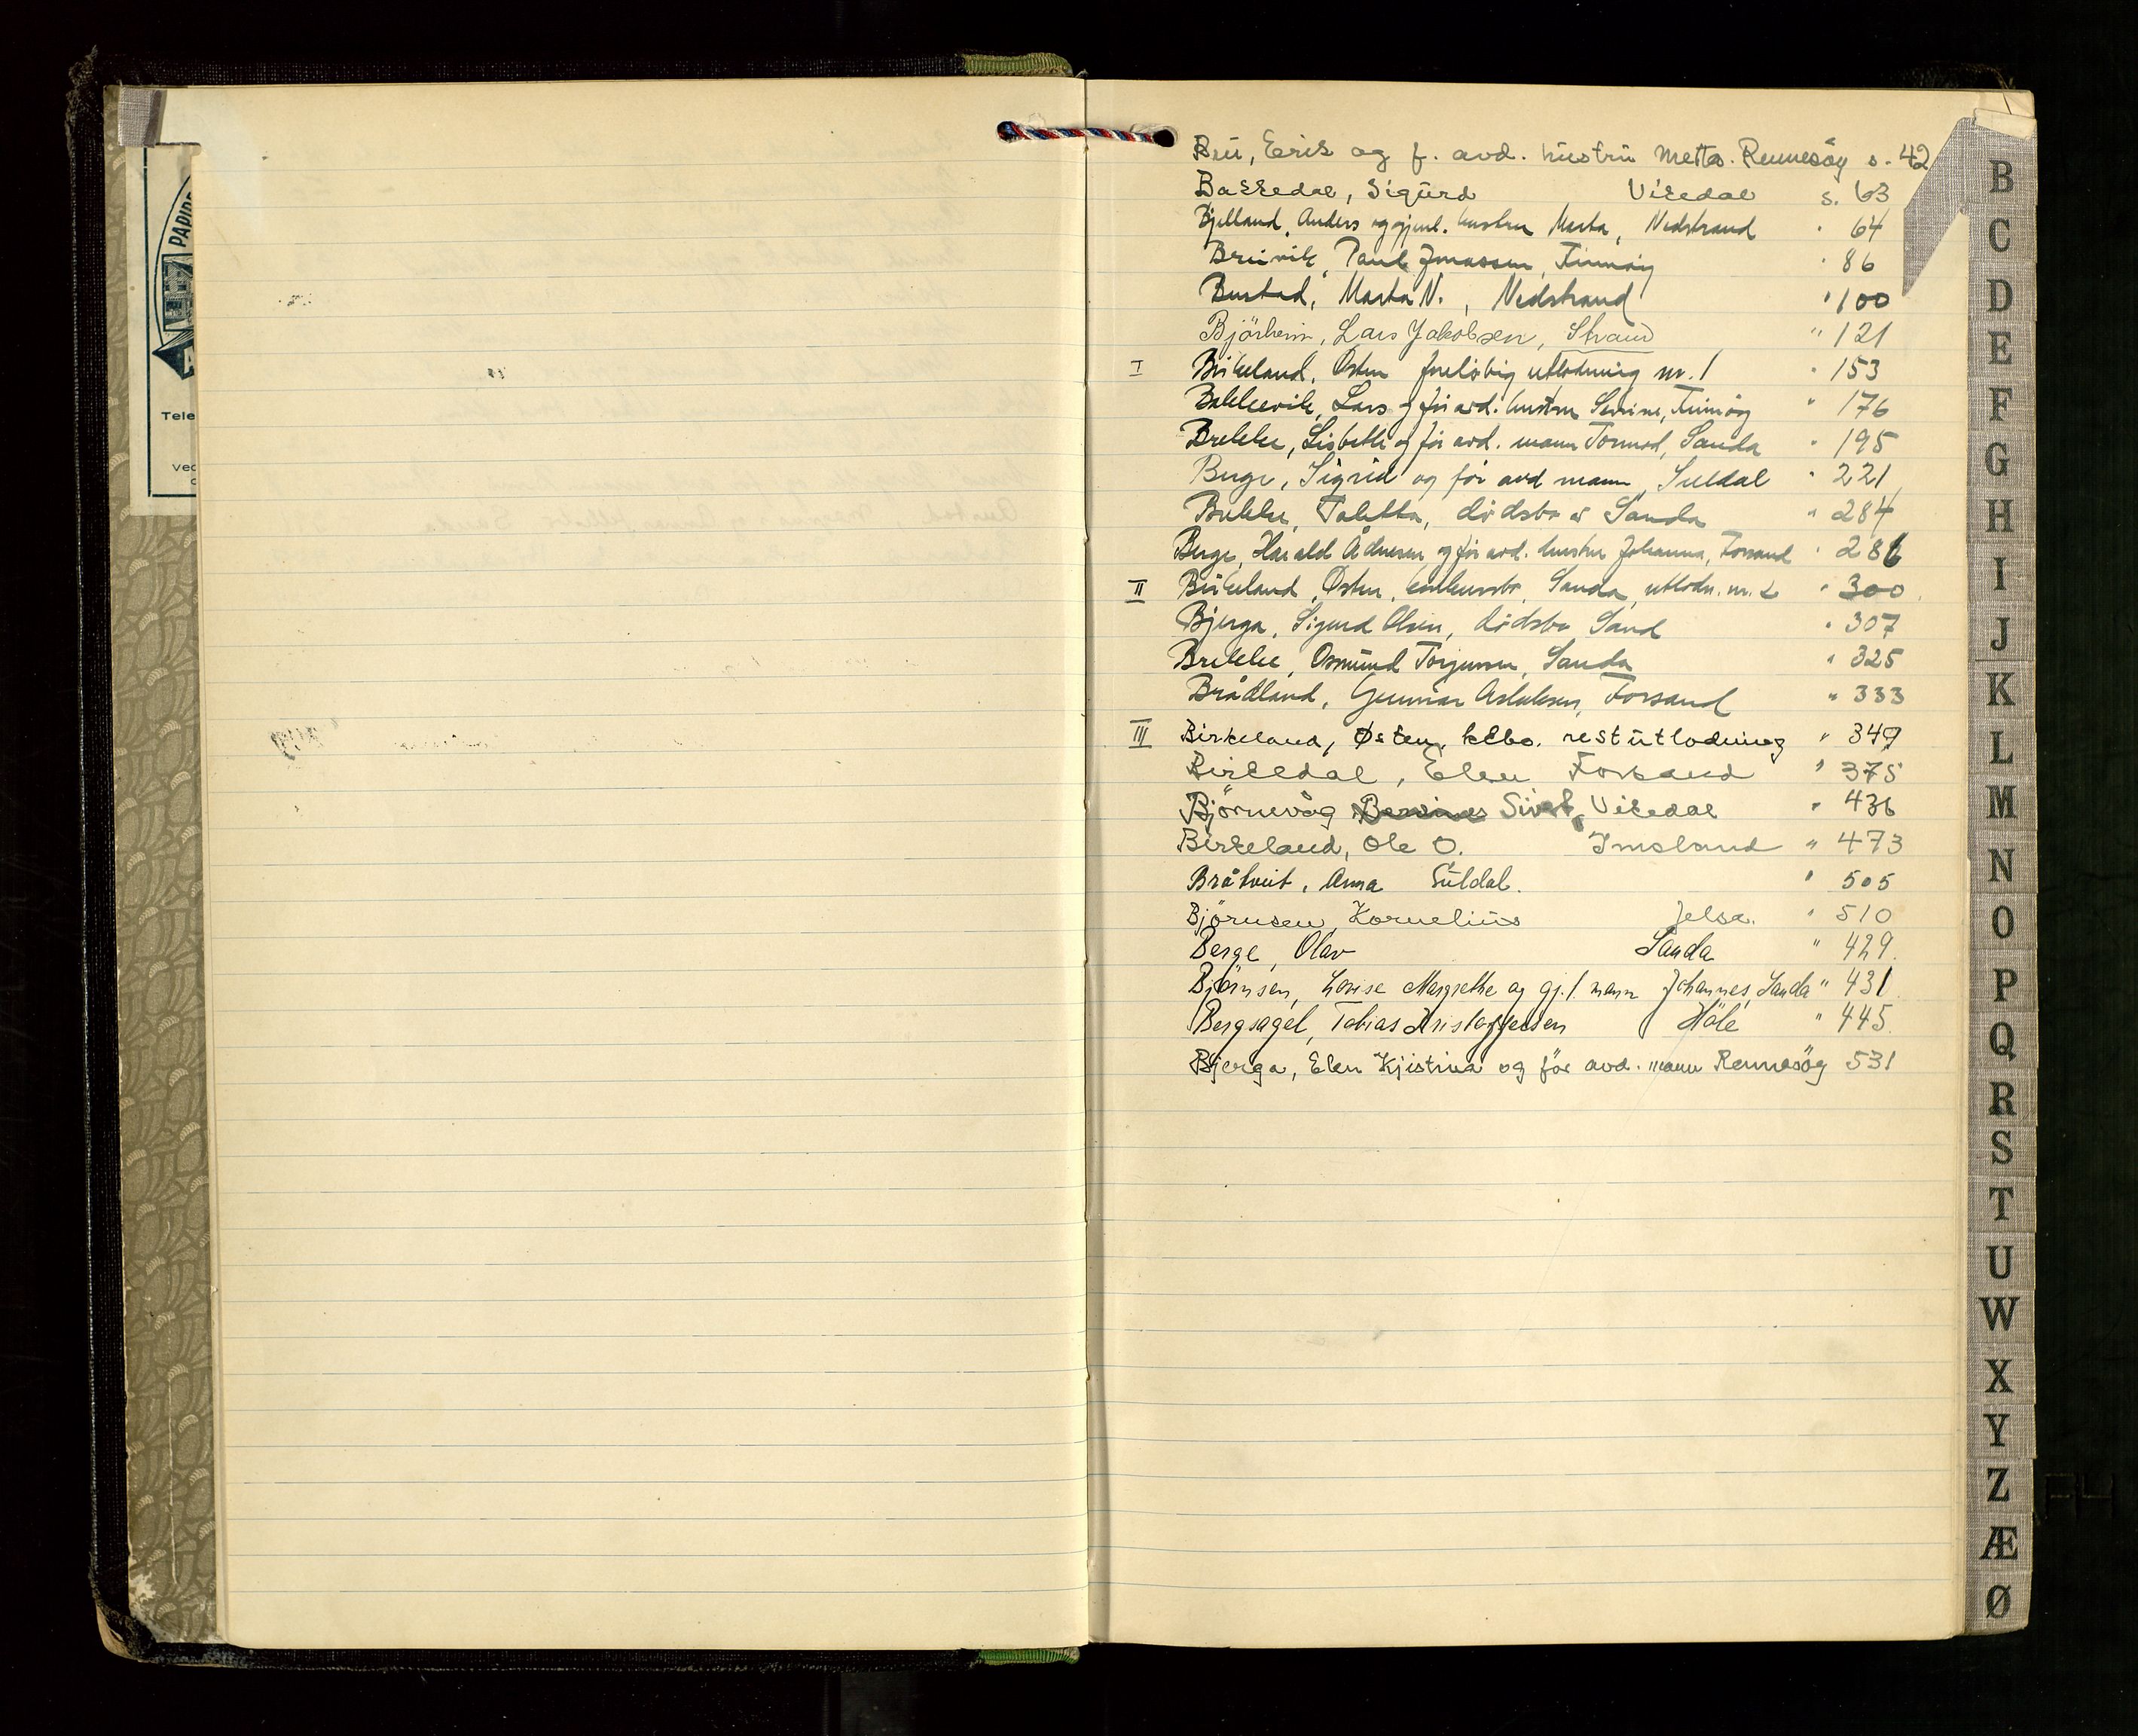 PAPIR
Tele
Bru, Eerik og f. avd. hustru Mette. Rennesöy s. 42
Bakkedal, Sigurd Vikedal s. 63
Bjelland, Anders og gjenl. hustru Marta, Nedstrand " 64
Breivik, Paul Jonassen, Finnöy " 86
Bustad, Marta N., Nedstrand " 100
Björheim, Lars Jakobsen, Strand " 121
I Birkeland, Østen foreløbig utlodning nr. 1 " 153
Bakkevik, Lars og før avd. hustru Serine, Finnöy " 176
Brekke, Lisbeth og før avd. mann Tormod, Sanda " 195
Berge, Sigrid og før avd mann, Suldal " 221
Brekke, Taletta, dödsbo i Sanda " 284
Berge, Harald Ådnesen og før avd. hustru Johanna, Forsand " 286
II Birkeland, Østen, konkursbo, Sanda, utlodn. nr. 2 " 300
Bjerga, Sigurd Olsen, dödsbo Sand " 307
Brekke, Osmund Torjusen, Sanda " 325
Brådland, Gunnar Aslaksen, Forsand " 333
III Birkeland, Østen, kkbo. restutlodning " 349
Birkedal, Elen Forsand " 375
Björnevåg Sivert, Vikedal " 436
Birkeland, Ole O. Imsland " 473
Bråtveit, Anna Suldal. " 505
Björnsen, Kornelius Jelsa. " 510
Berge, Olav Sanda " 429.
Bjørnsen, Lovise Margrethe og gj.l. mann Johannes, Sanda " 431
Bergsagel, Tobias Kristoffersen Höle " 445.
Bjerga, Elen Kjistina og før avd. mann Rennesöy 531
B
C
D
E
F
G
H
I
J
K
L
M
N
O
P
Q
R
S
T
U
W
X
Y
Z
Æ
Ø